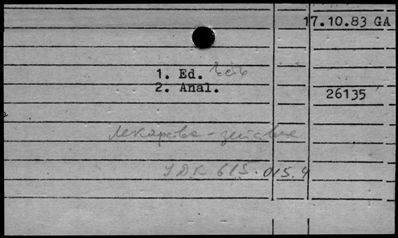 17.10.83 GA
1. Ed.
2. Anal.
26135
лекарства - действие
УДК 615.015.4